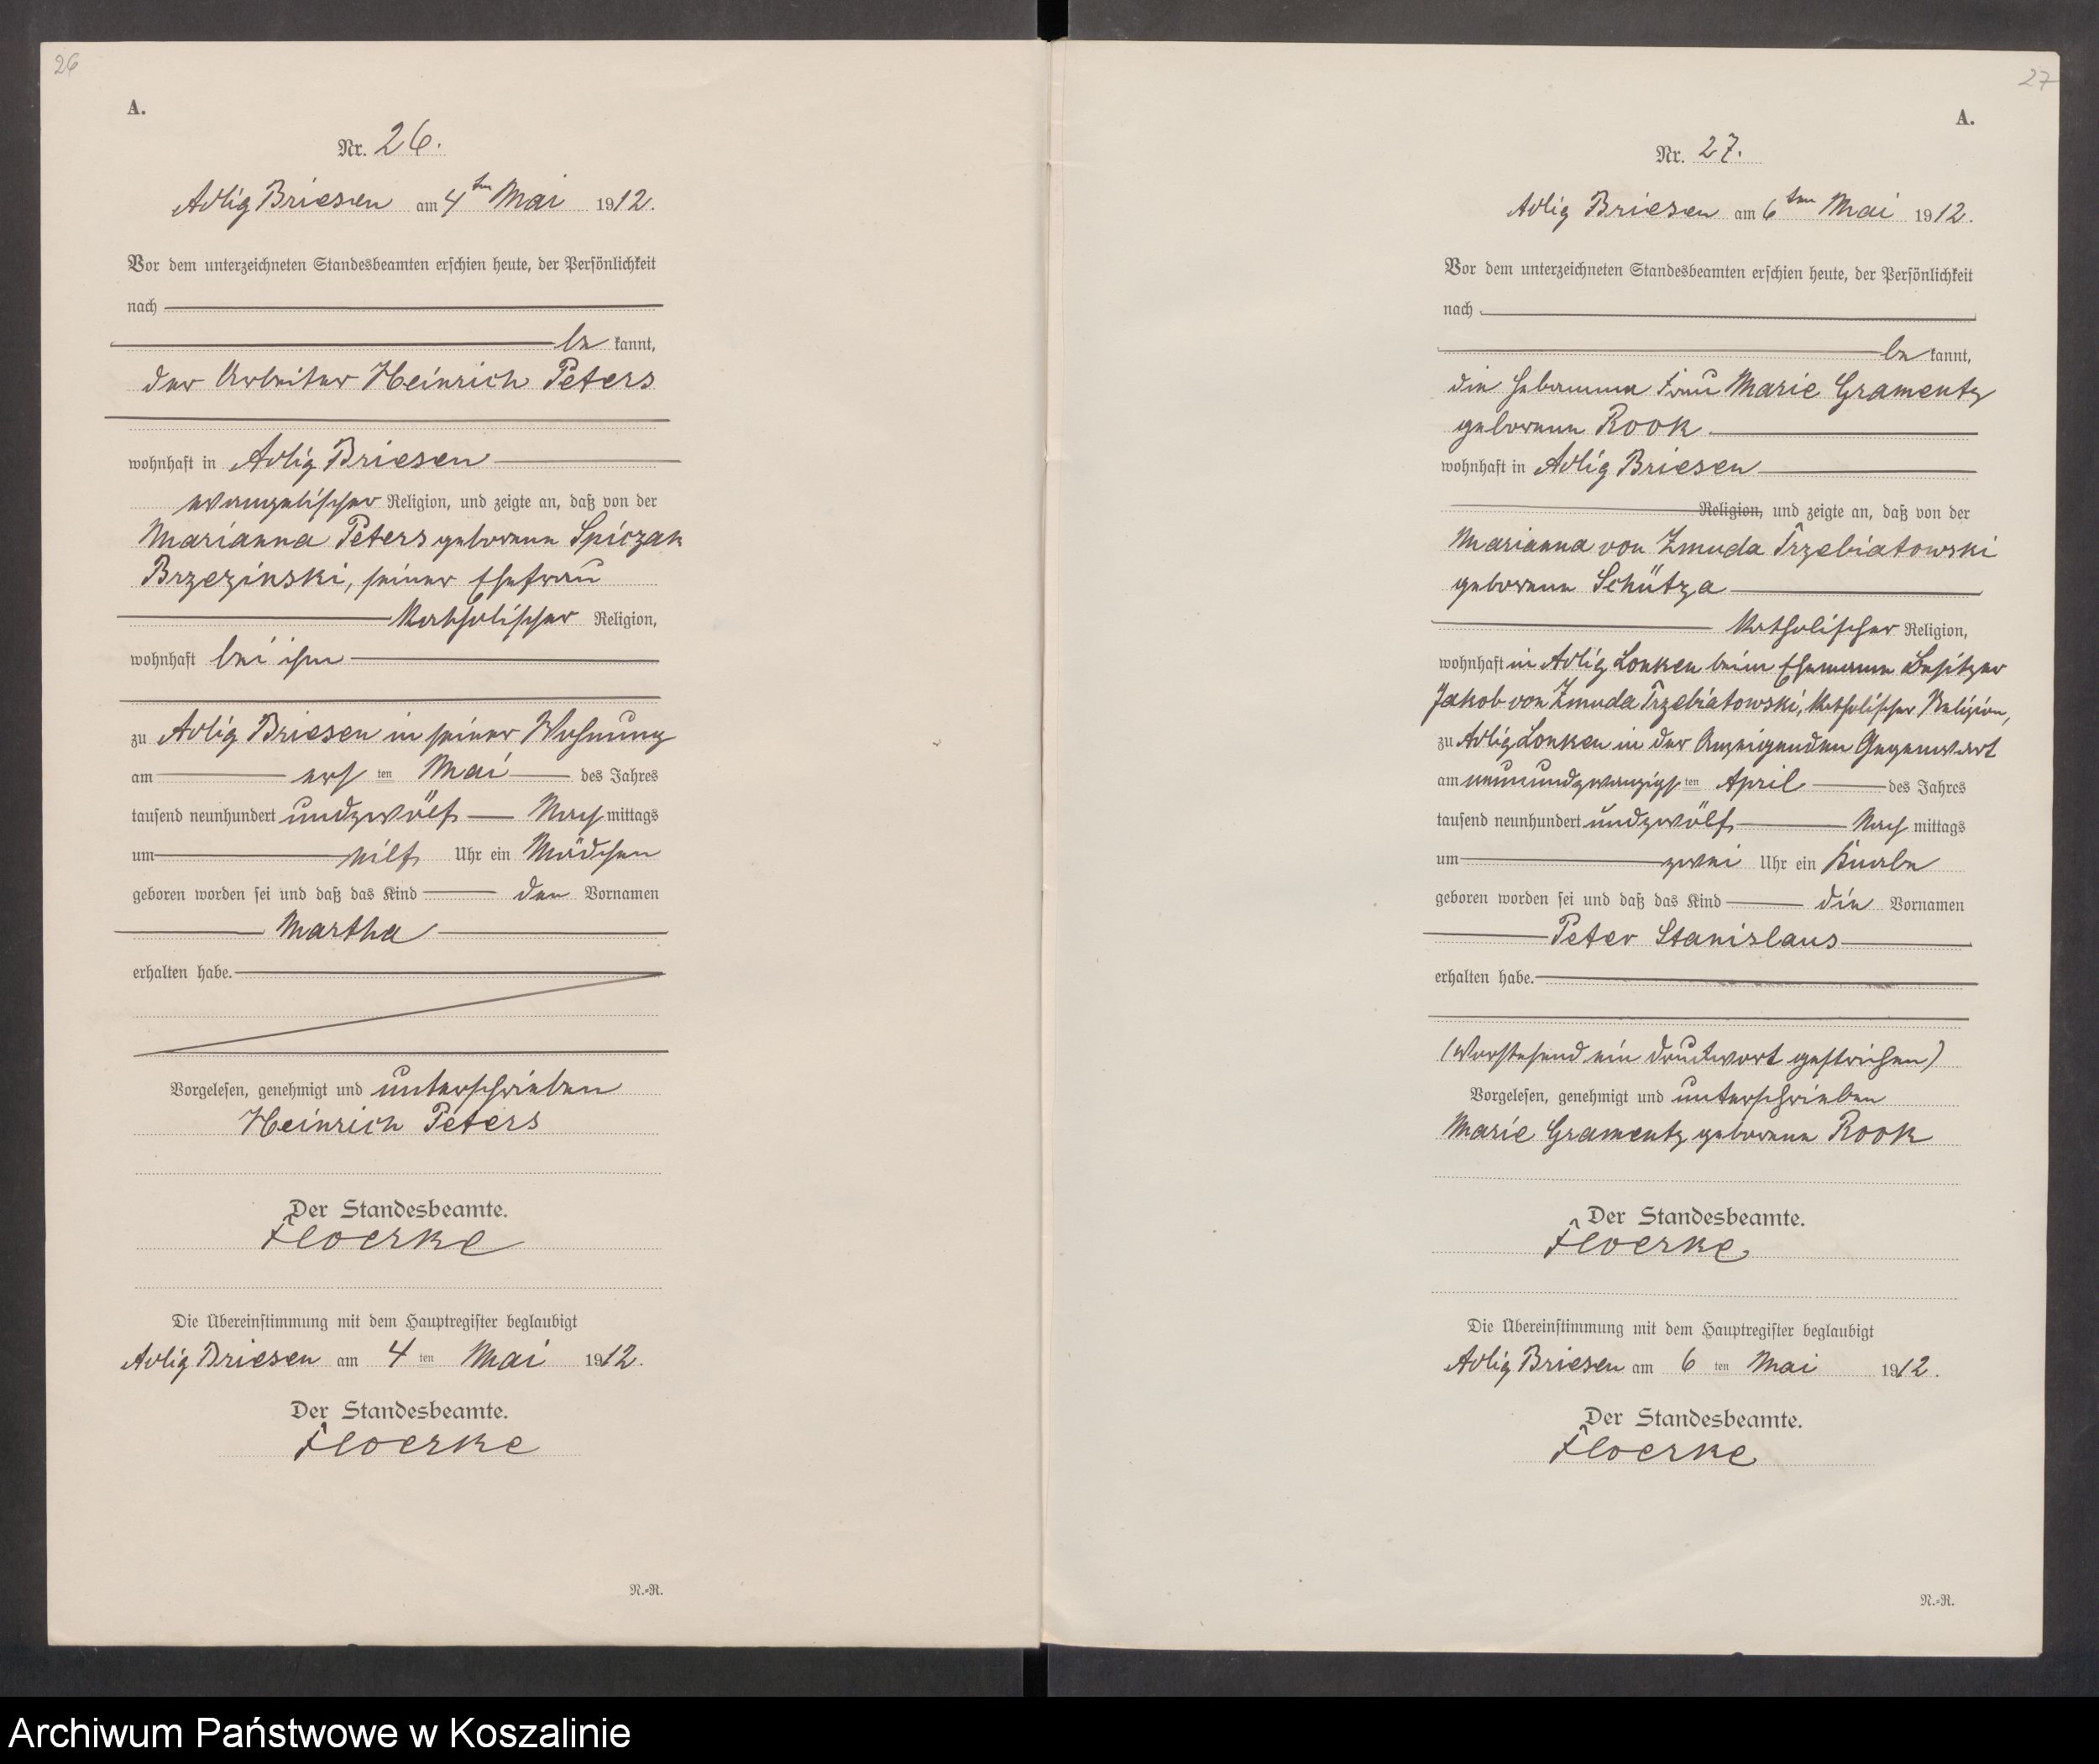 26
A.
Nr. 26.
Adlig Briesen am 4ten Mai 1912.
Vor dem unterzeichneten Standesbeamten erschien heute, der Persönlichkeit
nach
be kannt,
der Arbeiter Heinrich Peters
wohnhaft in Adlig Briesen
evangelischer Religion, und zeigte an, daß von der
Marianna Peters geborenen Spiczak
Brzezinski, seiner Ehefrau
katholischer Religion,
wohnhaft bei ihm
zu Adlig Briesen in seiner Wohnung
am ers ten Mai des Jahres
tausend neunhundert undzwölf Nach mittags
um elf Uhr ein Mädchen
geboren worden sei und daß das Kind den Vornamen
Martha
erhalten habe.
Vorgelesen, genehmigt und unterschrieben
Heinrich Peters
Der Standesbeamte.
Floerke
Die Übereinstimmung mit dem Hauptregister beglaubigt
Adlig Briesen am 4 ten Mai 1912.
Der Standesbeamte.
Floerke
N.-R.
27
A.
Nr. 27.
Adlig Briesen am 6ten Mai 1912.
Vor dem unterzeichneten Standesbeamten erschien heute, der Persönlichkeit
nach
be kannt,
die Hebamme Frau Marie Gramentz
geborene Rook
wohnhaft in Adlig Briesen
Religion, und zeigte an, daß von der
Marianna von Zmuda Trzebiatowski
geborene Schütza
katholischer Religion,
wohnhaft in Adlig Lonken beim Ehemanne Besitzer
Jakob von Zmuda Trzebiatowski, katholischer Religion,
zu Adlig Lonken in der Anzeigenden Gegenwart
am neunundzwanzigs ten April des Jahres
tausend neunhundert undzwölf Nach mittags
um zwei Uhr ein Knabe
geboren worden sei und daß das Kind die Vornamen
Peter Stanislaus
erhalten habe.
(Vorstehend ein Druckwort gestrichen)
Vorgelesen, genehmigt und unterschrieben
Marie Gramentz geborene Rook
Der Standesbeamte.
Floerke
Die Übereinstimmung mit dem Hauptregister beglaubigt
Adlig Briesen am 6 ten Mai 1912.
Der Standesbeamte.
Floerke
N.-R.
Archiwum Państwowe w Koszalinie